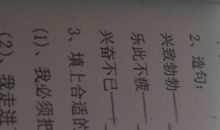 2、造句:
兴致勃勃——
乐此不疲——
兴奋不已——
3、填上合适的
(1)、我必须把
(2)、我走进